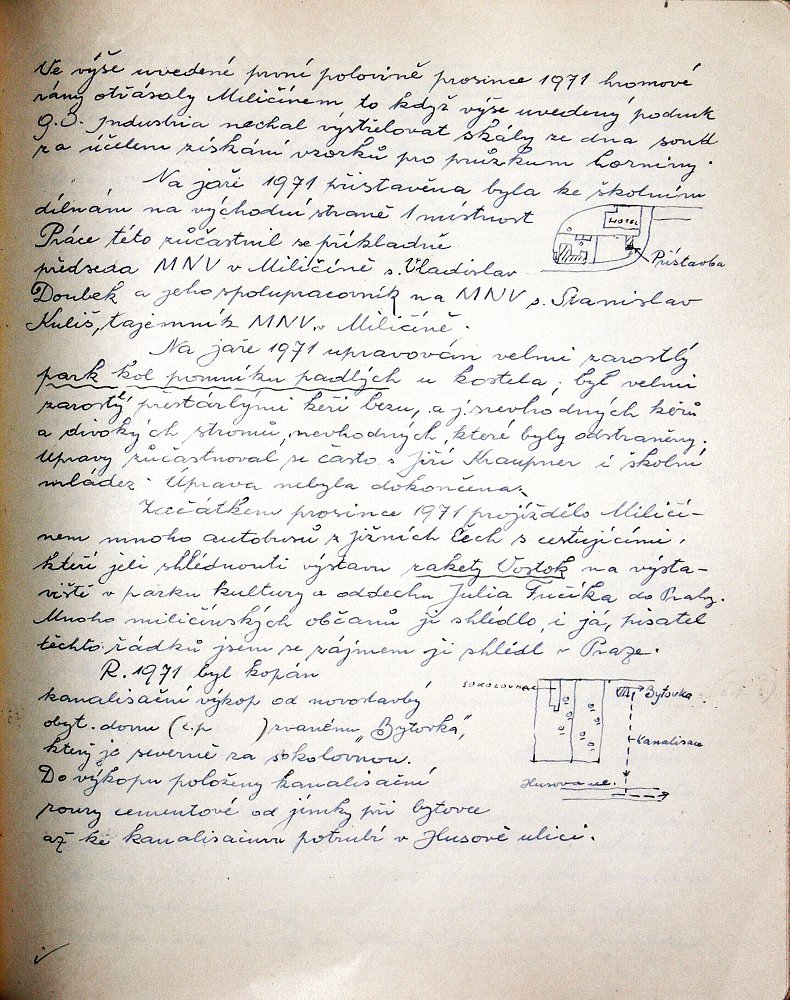 Ve výše uvedené první polovině prosince 1971 hromové
rány otřásaly Miličínem to když výše uvedený podnik
G.I. Industria nechal výstřelovat skály ze dna sond
za účelem získání vzorků pro průzkum horniny.
Na jaře 1971 přistavěna byla ke školním
dílnám na východní straně 1 místnost
Práce této zúčastnil se příkladně
předseda MNV v Miličíně s. Vladislav
Doubek a jeho spolupracovník na MNV s. Stanislav
Kuliš, tajemník MNV v Miličíně.
HOTEL
Přístavba
Na jaře 1971 upravován velmi zarostlý
park kol pomníku padlých u kostela, byl velmi
zarostlý přestárlými keři bezu, a j. nevhodných kěřů
a divokých stromů, nevhodných, které byly odstraněny.
Úpravy zúčastnoval se často s. Jiří Kraupner i školní
mládež. Úprava nebyla dokončena.
Začátkem prosince 1971 projíždělo Miličí-
nem mnoho autobusů z jižních Čech s cestujícími,
kteří jeli shlédnouti výstavu rakety Vostok na výsta-
višti v parku kultury a oddechu Julia Fučíka do Prahy.
Mnoho miličínských občanů ji shlédlo, i já, pisatel
těchto řádků jsem se zájmem ji shlédl v Praze.
R. 1971 byl kopán
kanalisační výkop od novostavby
obyt. domu (č.p ) zvanému „Bytovka",
který je severně za sokolovnou.
Do výkopu položeny kanalisační
roury cementové od jímky při bytovce
až ke kanalisačnu potrubí v Husově ulici.
SOKOLOVNA
Bytovka
Kanalisace
Husova ul.